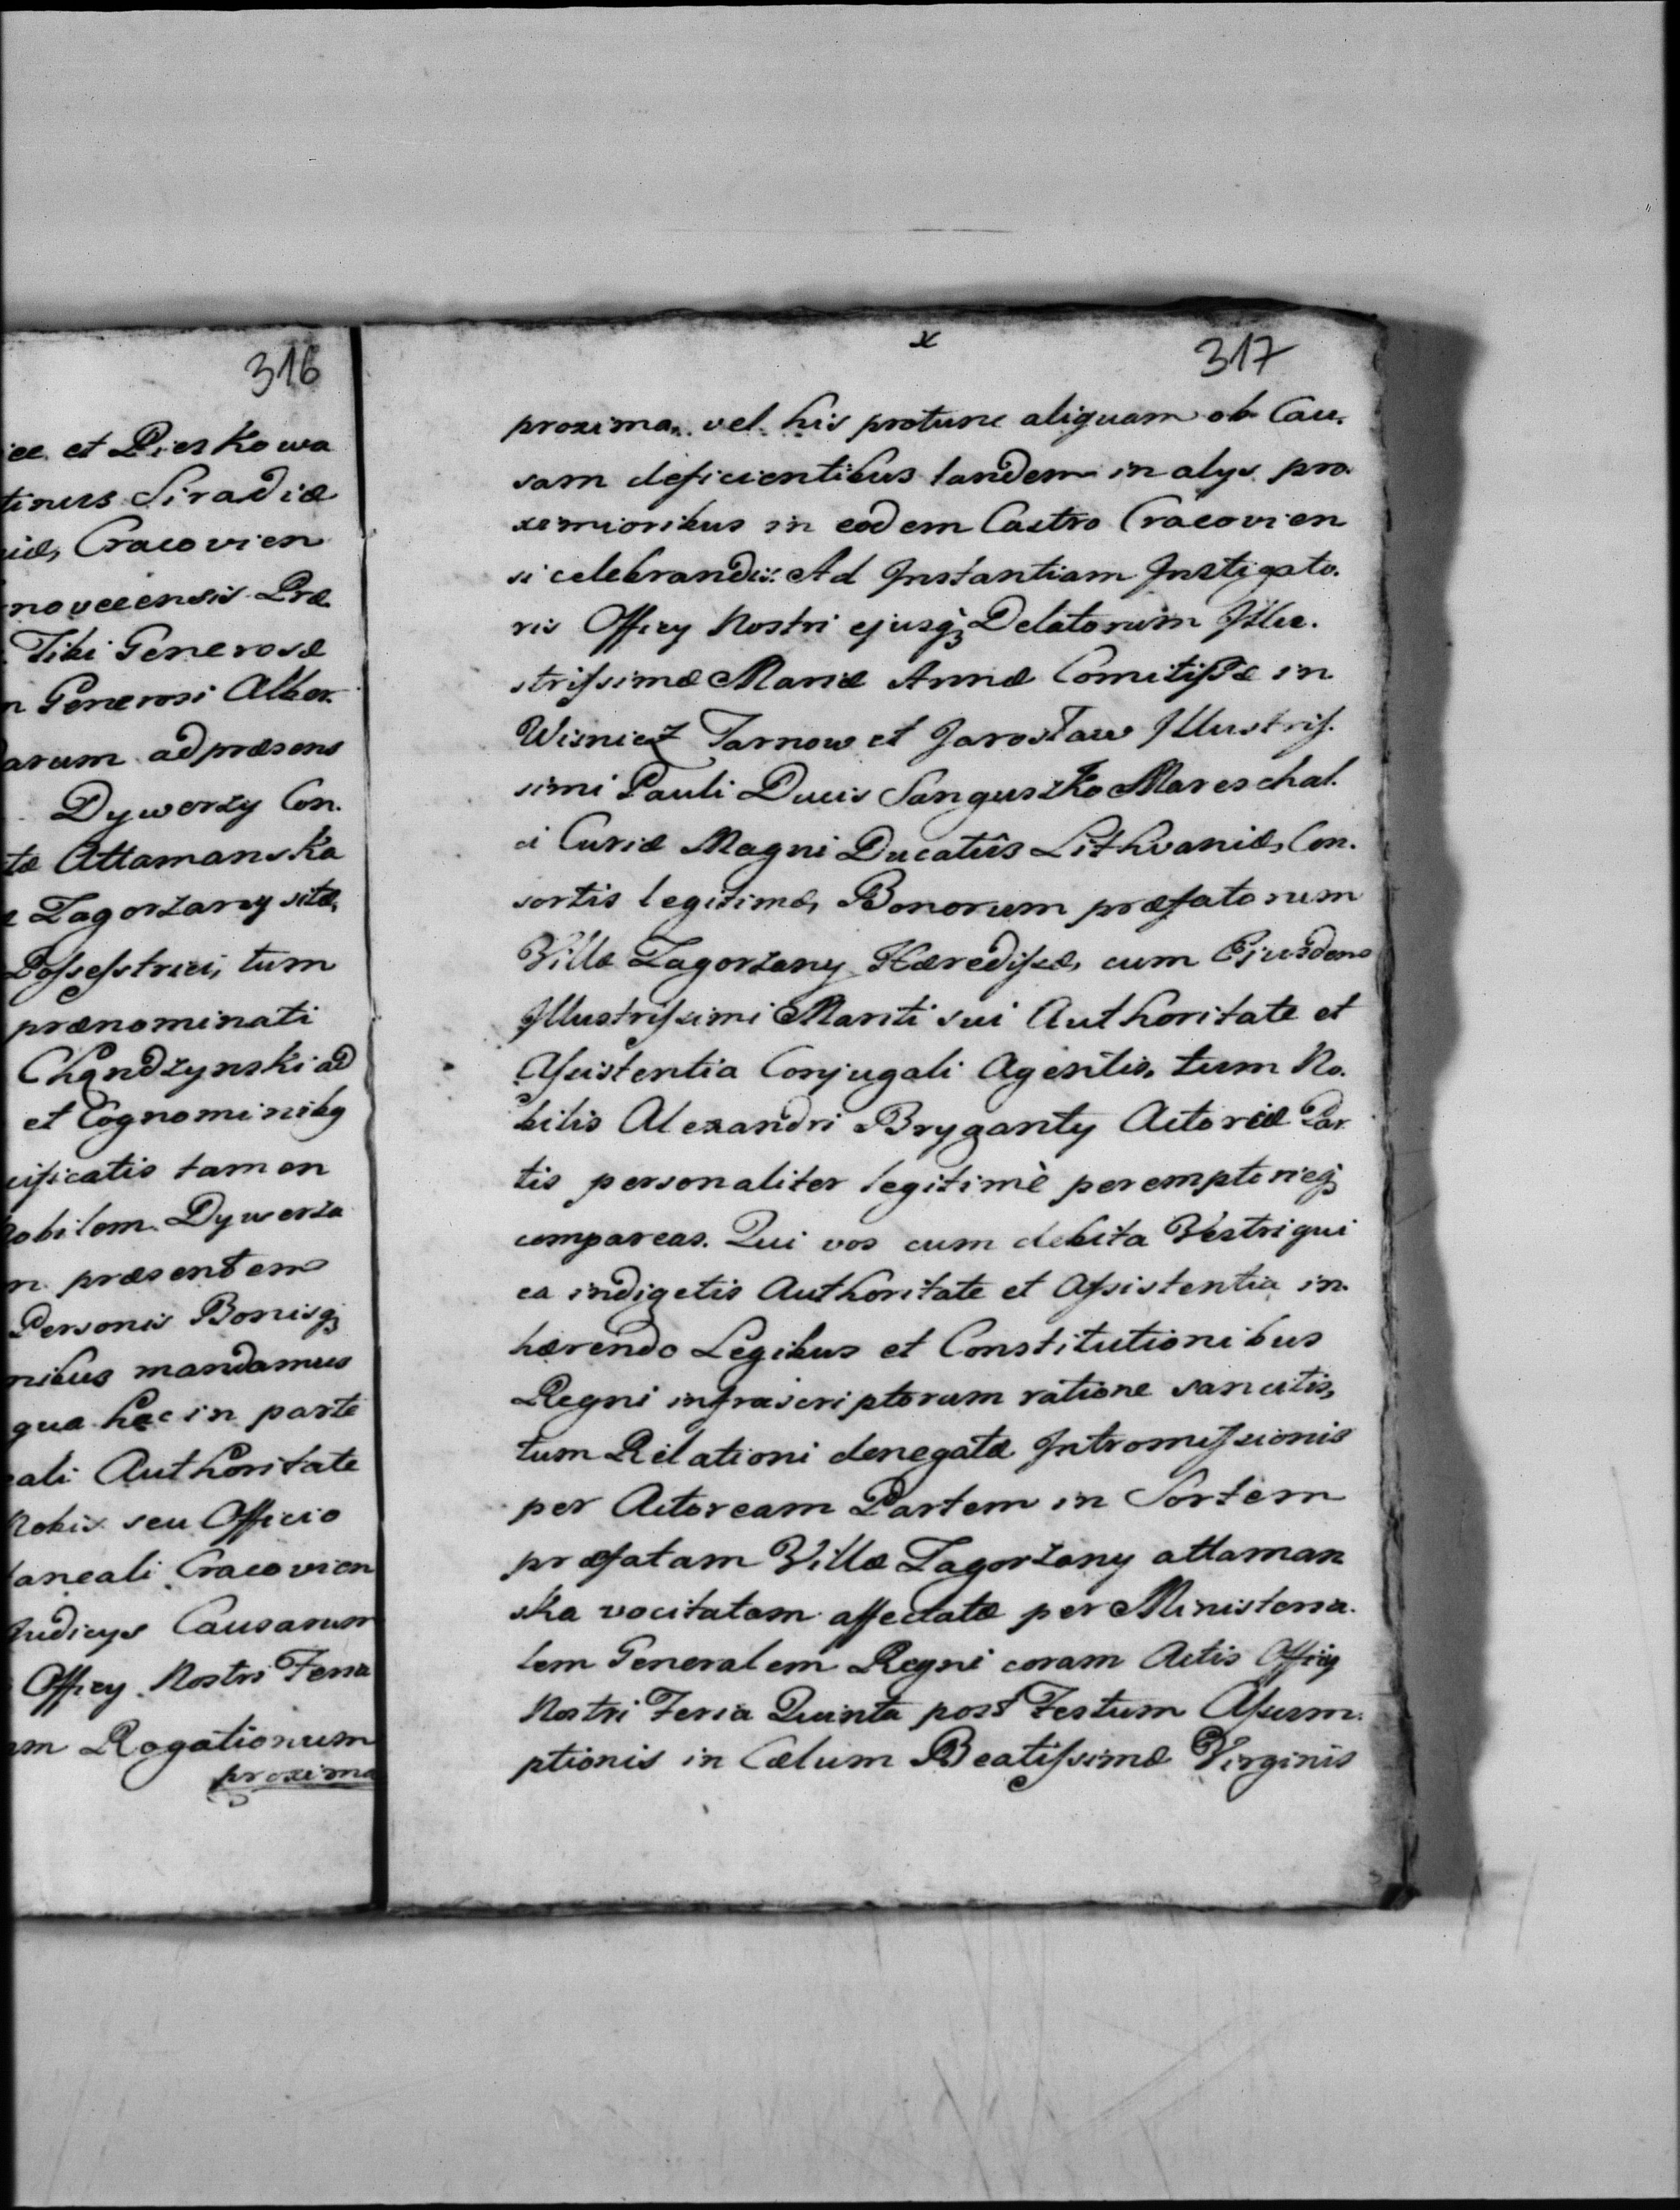 316
ce et Pieskowa
tinus Siradiæ
iæ, Cracovien
novecensis Præ
Tibi Generosæ
n Generosi Alber.
arum ad præsens
Dyworzy Con.
tæ Attamanska
Zagorzany sitæ,
Possestrici, tum
prænominati
Chądzynski ad
et Cognominibꝯ
cificatis tamen
obilem Dyworza
n præsentem
Personis Bonisqꝫ
nibus mandamus
qua hac in parte
ali Authoritate
Nobis seu Officio
aneali Cracovien
Judicys Causarum
Officy Nostri Feria
m Rogationum
proxima
x 317
proxima, vel his protunc aliquam ob Cau.
sam deficientibus tandem in alys pro.
ximioribus in eodem Castro Cracovien
si celebrandis: Ad Instantiam Instigato.
ris Officy Nostri ejusqꝫ Delatorum Illu.
strissimæ Mariæ Annæ Comitissæ in
Wisnicz Tarnow et Jarosław Illustris.
simi Pauli Ducis Sanguszko Mareschal.
ci Curiæ Magni Ducatûs Lithvaniæ, Con.
sortis legitimæ, Bonorum præfatorum
Villæ Zagorzany Hæredissæ, cum Ejusdem
Illustrissimi Mariti sui Authoritate et
Assistentia Conjugali Agentis, tum No.
bilis Alexandri Bryganty Actoreæ Par
tis personaliter legitimè peremptorieqꝫ
compareas. Qui vos cum debita Vestri qui
ea indigetis Authoritate et Assistentia in.
hærendo Legibus et Constitutionibus
Regni infrascriptorum ratione sancitis,
tum Relationi denegatæ Intromissionis
per Actoream Partem in Sortem
præfatam Villæ Zagorzany attaman
ska vocitatam affectatæ per Ministeria.
lem Generalem Regni coram Actis Officy
Nostri Feria Quinta post Festum Assum.
ptionis in Cœlum Beatissimæ Virginis